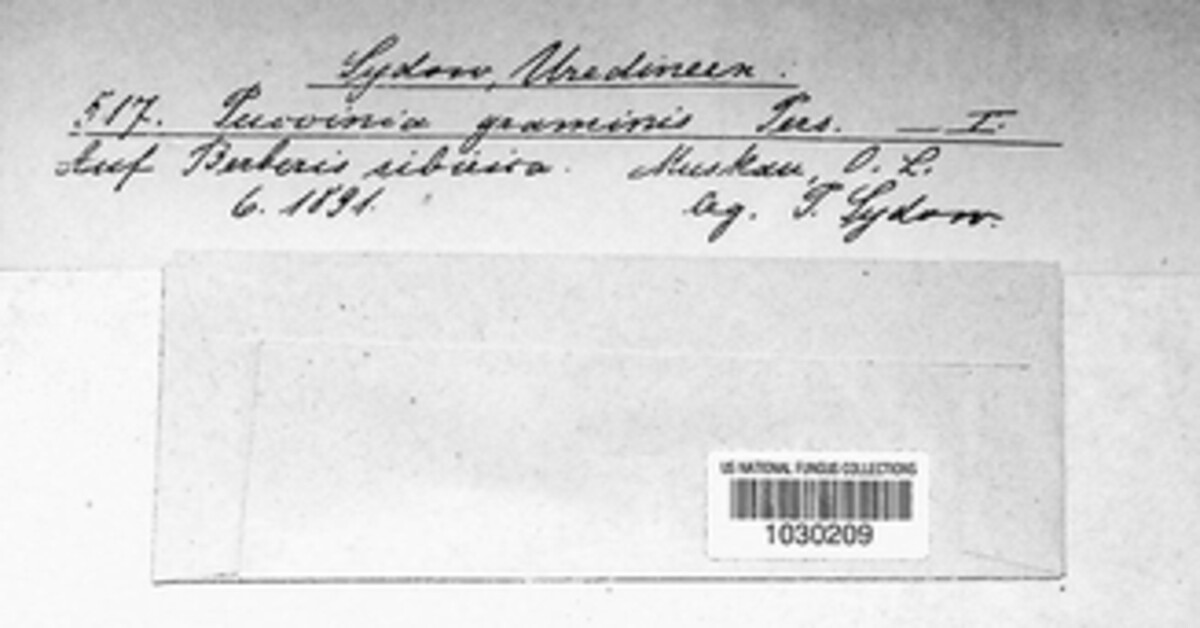 Sydow, Uredineen.
517. Puccinia graminis Pers. — I.
Auf Berberis sibirica. Muskau, O. L.
6. 1891. lg. P. Sydow.
US NATIONAL FUNGUS COLLECTIONS
1030209